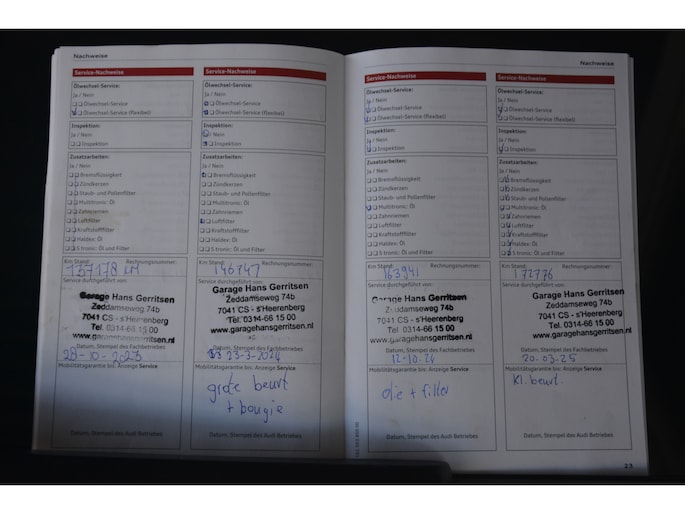 Nachweise
Service-Nachweise
Ölwechsel-Service:
Ja / Nein
Ölwechsel-Service
Ölwechsel-Service (flexibel)
Inspektion:
Ja / Nein
Inspektion
Zusatzarbeiten:
Ja / Nein
Bremsflüssigkeit
Zündkerzen
Staub- und Pollenfilter
Multitronic: Öl
Zahnriemen
Luftfilter
Kraftstofffilter
Haldex: Öl
S tronic: Öl und Filter
Km Stand: Rechnungsnummer:
137178 KM
Service durchgeführt von:
Garage Hans Gerritsen
Zeddamseweg 74b
7041 CS - s'Heerenberg
Tel. 0314-66 15 00
www.garagehansgerritsen.nl
Datum, Stempel des Fachbetriebes
28-10-2023
Mobilitätsgarantie bis: Anzeige Service
Datum, Stempel des Audi Betriebes
Service-Nachweise
Ölwechsel-Service:
Ja / Nein
Ölwechsel-Service
Ölwechsel-Service (flexibel)
Inspektion:
Ja / Nein
Inspektion
Zusatzarbeiten:
Ja / Nein
Bremsflüssigkeit
Zündkerzen
Staub- und Pollenfilter
Multitronic: Öl
Zahnriemen
Luftfilter
Kraftstofffilter
Haldex: Öl
S tronic: Öl und Filter
Km Stand: Rechnungsnummer:
146747
Service durchgeführt von:
Garage Hans Gerritsen
Zeddamseweg 74b
7041 CS - s'Heerenberg
Tel. 0314-66 15 00
www.garagehansgerritsen.nl
Datum, Stempel des Fachbetriebes
23-3-2024
Mobilitätsgarantie bis: Anzeige Service
grote beurt
+ bougie
Datum, Stempel des Audi Betriebes
Nachweise
Service-Nachweise
Ölwechsel-Service:
Ja / Nein
Ölwechsel-Service
Ölwechsel-Service (flexibel)
Inspektion:
Ja / Nein
Inspektion
Zusatzarbeiten:
Ja / Nein
Bremsflüssigkeit
Zündkerzen
Staub- und Pollenfilter
Multitronic: Öl
Zahnriemen
Luftfilter
Kraftstofffilter
Haldex: Öl
S tronic: Öl und Filter
Km Stand: Rechnungsnummer:
163941
Service durchgeführt von:
Garage Hans Gerritsen
Zeddamseweg 74b
7041 CS - s'Heerenberg
Tel. 0314-66 15 00
www.garagehansgerritsen.nl
Datum, Stempel des Fachbetriebes
12-10-24
Mobilitätsgarantie bis: Anzeige Service
olie + filter
Datum, Stempel des Audi Betriebes
Service-Nachweise
Ölwechsel-Service:
Ja / Nein
Ölwechsel-Service
Ölwechsel-Service (flexibel)
Inspektion:
Ja / Nein
Inspektion
Zusatzarbeiten:
Ja / Nein
Bremsflüssigkeit
Zündkerzen
Staub- und Pollenfilter
Multitronic: Öl
Zahnriemen
Luftfilter
Kraftstofffilter
Haldex: Öl
S tronic: Öl und Filter
Km Stand: Rechnungsnummer:
172776
Service durchgeführt von:
Garage Hans Gerritsen
Zeddamseweg 74b
7041 CS - s'Heerenberg
Tel. 0314-66 15 00
www.garagehansgerritsen.nl
Datum, Stempel des Fachbetriebes
20-03-25
Mobilitätsgarantie bis: Anzeige Service
Kl. beurt.
Datum, Stempel des Audi Betriebes
23